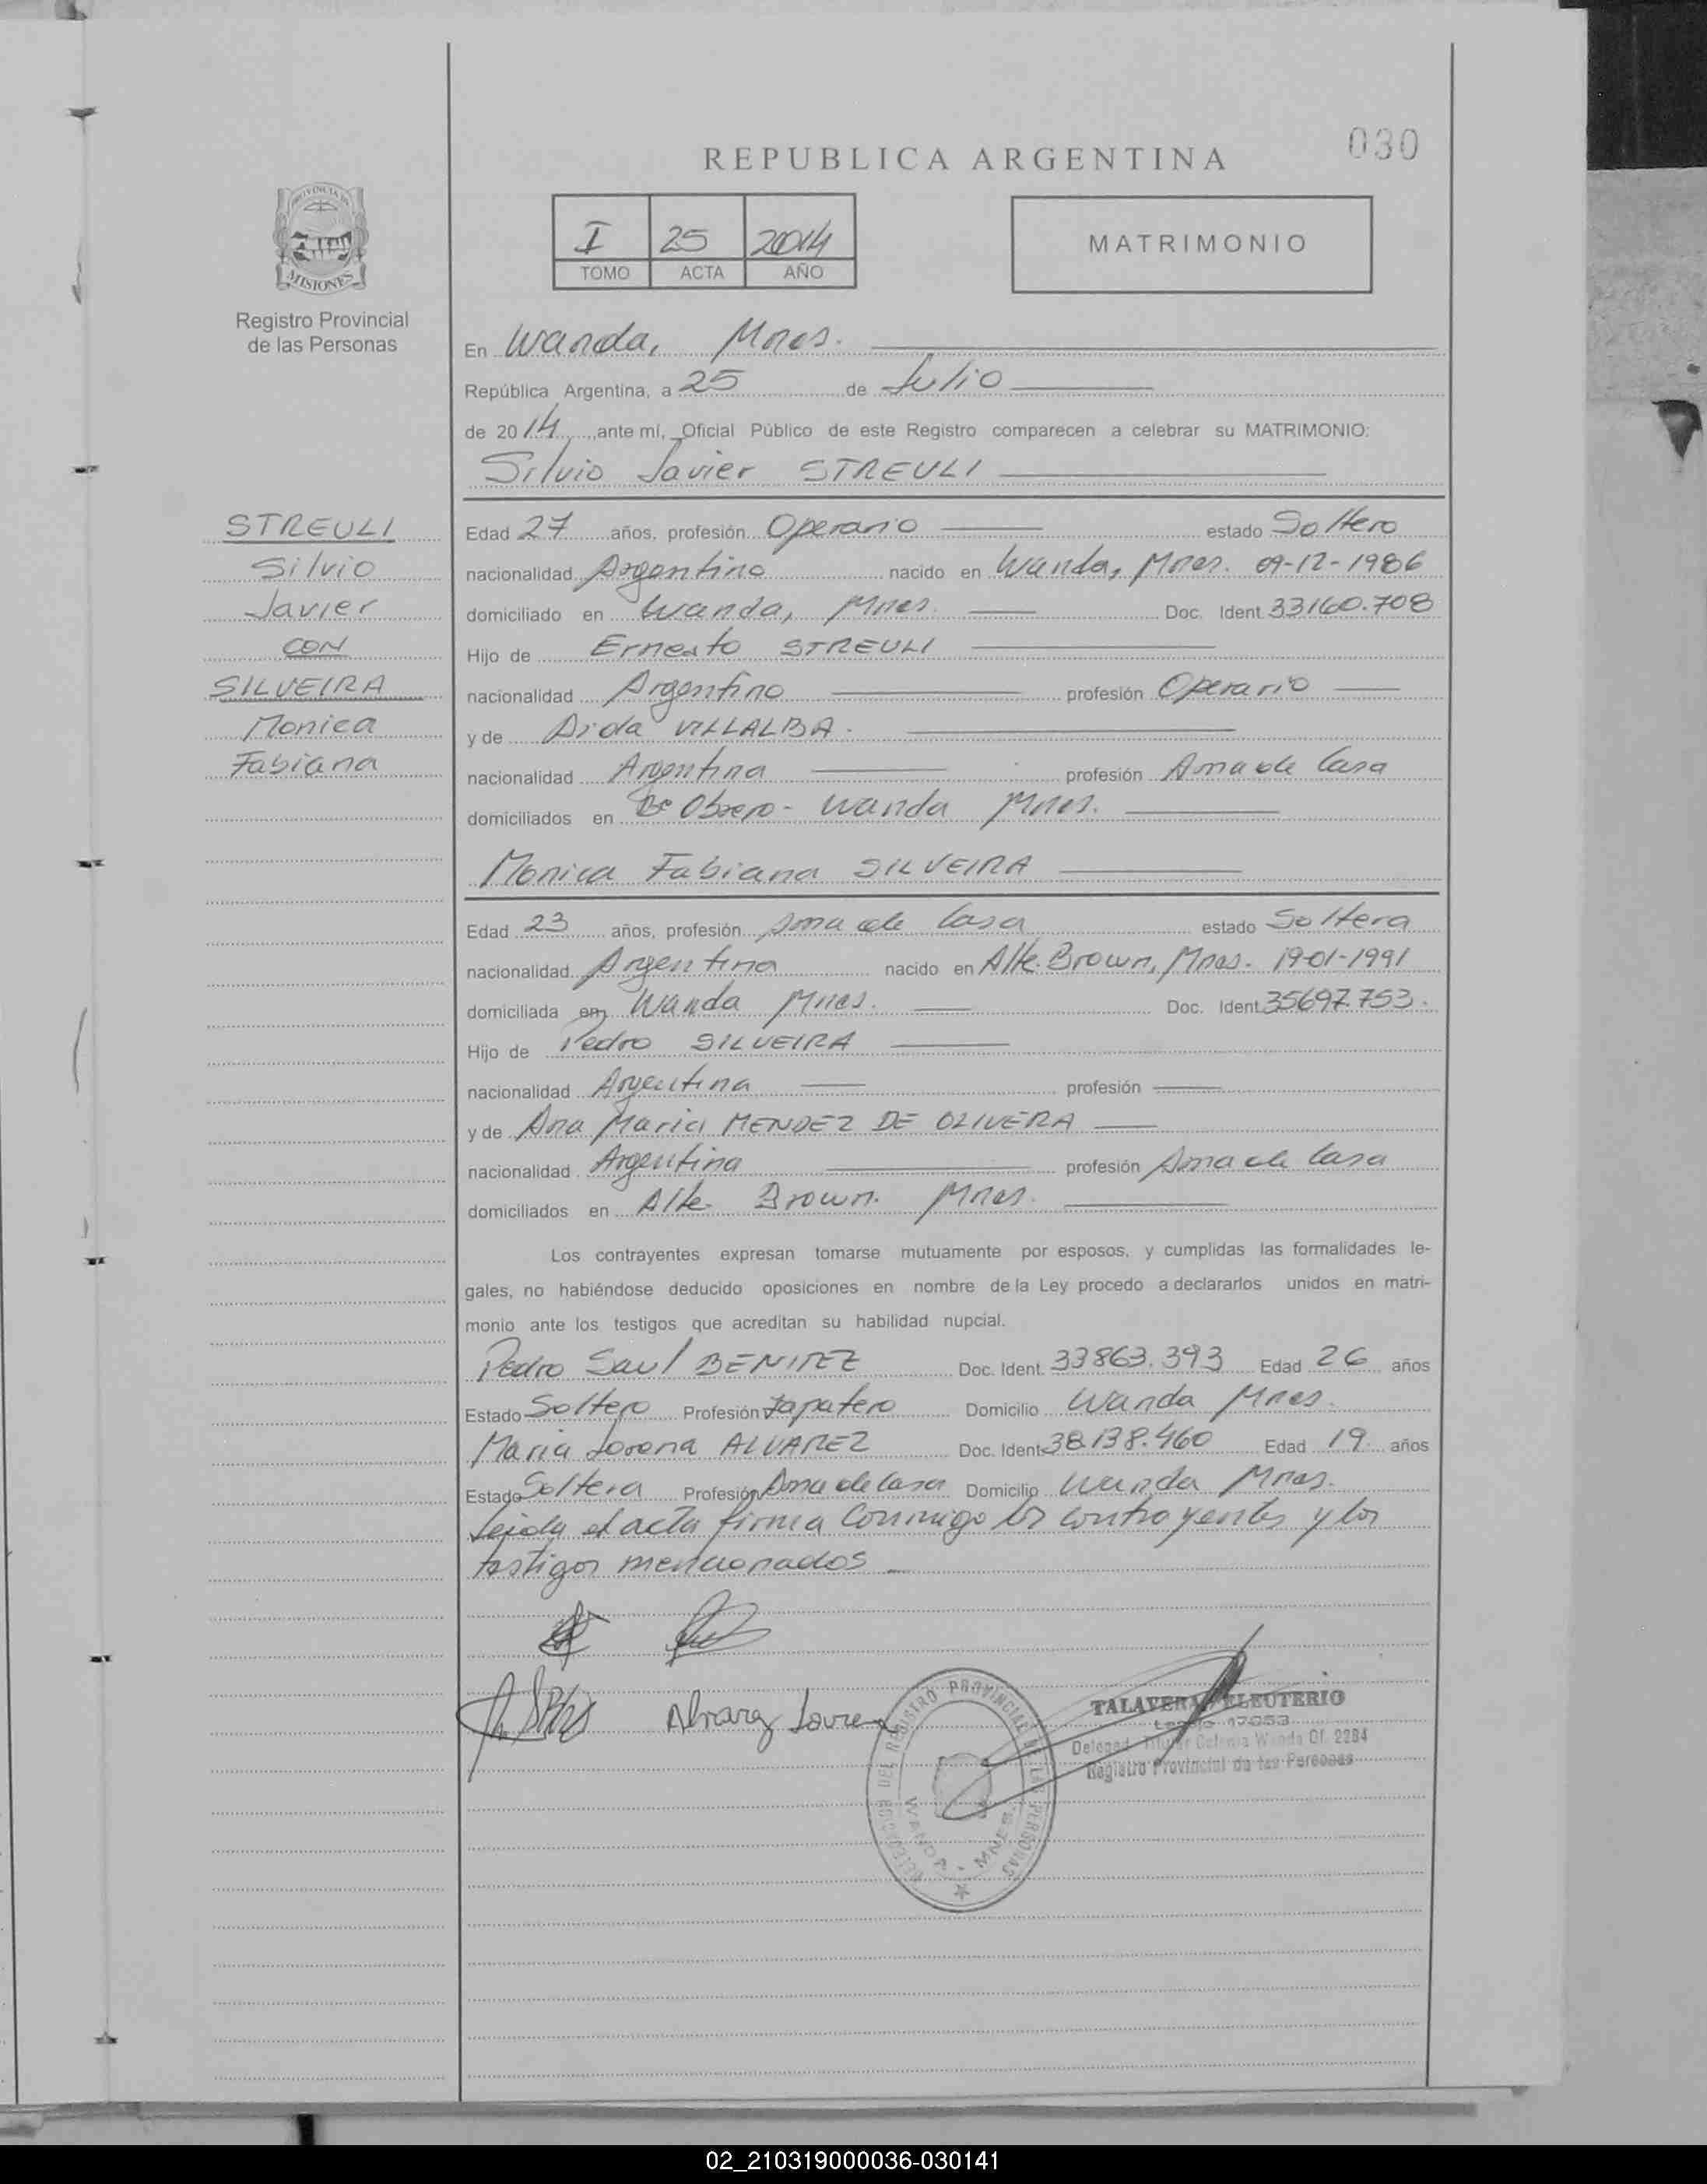 030
REPUBLICA ARGENTINA
PROVINCIA DE
MISIONES
Registro Provincial
de las Personas
I 25 2014
TOMO ACTA AÑO
MATRIMONIO
En Wanda, Mnes.
República Argentina, a 25 de Julio
de 2014, ante mí, Oficial Público de este Registro comparecen a celebrar su MATRIMONIO:
Silvio Javier STREULI
STREULI
Silvio
Javier
CON
SILVEIRA
Monica
Fabiana
Edad 27 años, profesión Operario estado Soltero
nacionalidad Argentino nacido en Wanda, Mnes. 09-12-1986
domiciliado en Wanda, Mnes. Doc. Ident 33160.708
Hijo de Ernesto STREULI
nacionalidad Argentino profesión Operario
y de Aida VILLALBA.
nacionalidad Argentina profesión Ama de Casa
domiciliados en Bº Obrero - Wanda Mnes.
Monica Fabiana SILVEIRA
Edad 23 años, profesión Ama de Casa estado Soltera
nacionalidad Argentina nacido en Alte. Brown, Mnes. 19-01-1991
domiciliada en Wanda Mnes. Doc. Ident 35697.753.
Hijo de Pedro SILVEIRA
nacionalidad Argentina profesión
y de Ana Maria MENDEZ DE OLIVERA
nacionalidad Argentina profesión Ama de Casa
domiciliados en Alte Brown. Mnes.
Los contrayentes expresan tomarse mutuamente por esposos, y cumplidas las formalidades le-
gales, no habiéndose deducido oposiciones en nombre de la Ley procedo a declararlos unidos en matri-
monio ante los testigos que acreditan su habilidad nupcial.
Pedro Saul BENITEZ Doc. Ident. 33863.393 Edad 26 años
Estado Soltero Profesión Zapatero Domicilio Wanda Mnes.
Maria Lorena ALVAREZ Doc. Ident 38.138.460 Edad 19 años
Estado Soltera Profesión Ama de Casa Domicilio Wanda Mnes.
Leida el acta firma Conmigo los contrayentes y los
testigos mencionados
Alvarez Lorena
TALAVERA ELEUTERIO
Legajo 17053
Delegad. Titular Colonia Wanda Of. 2284
Registro Provincial de las Personas
DELEGACION DEL REGISTRO PROVINCIAL DE LAS PERSONAS
WANDA - MNES.
02_210319000036-030141